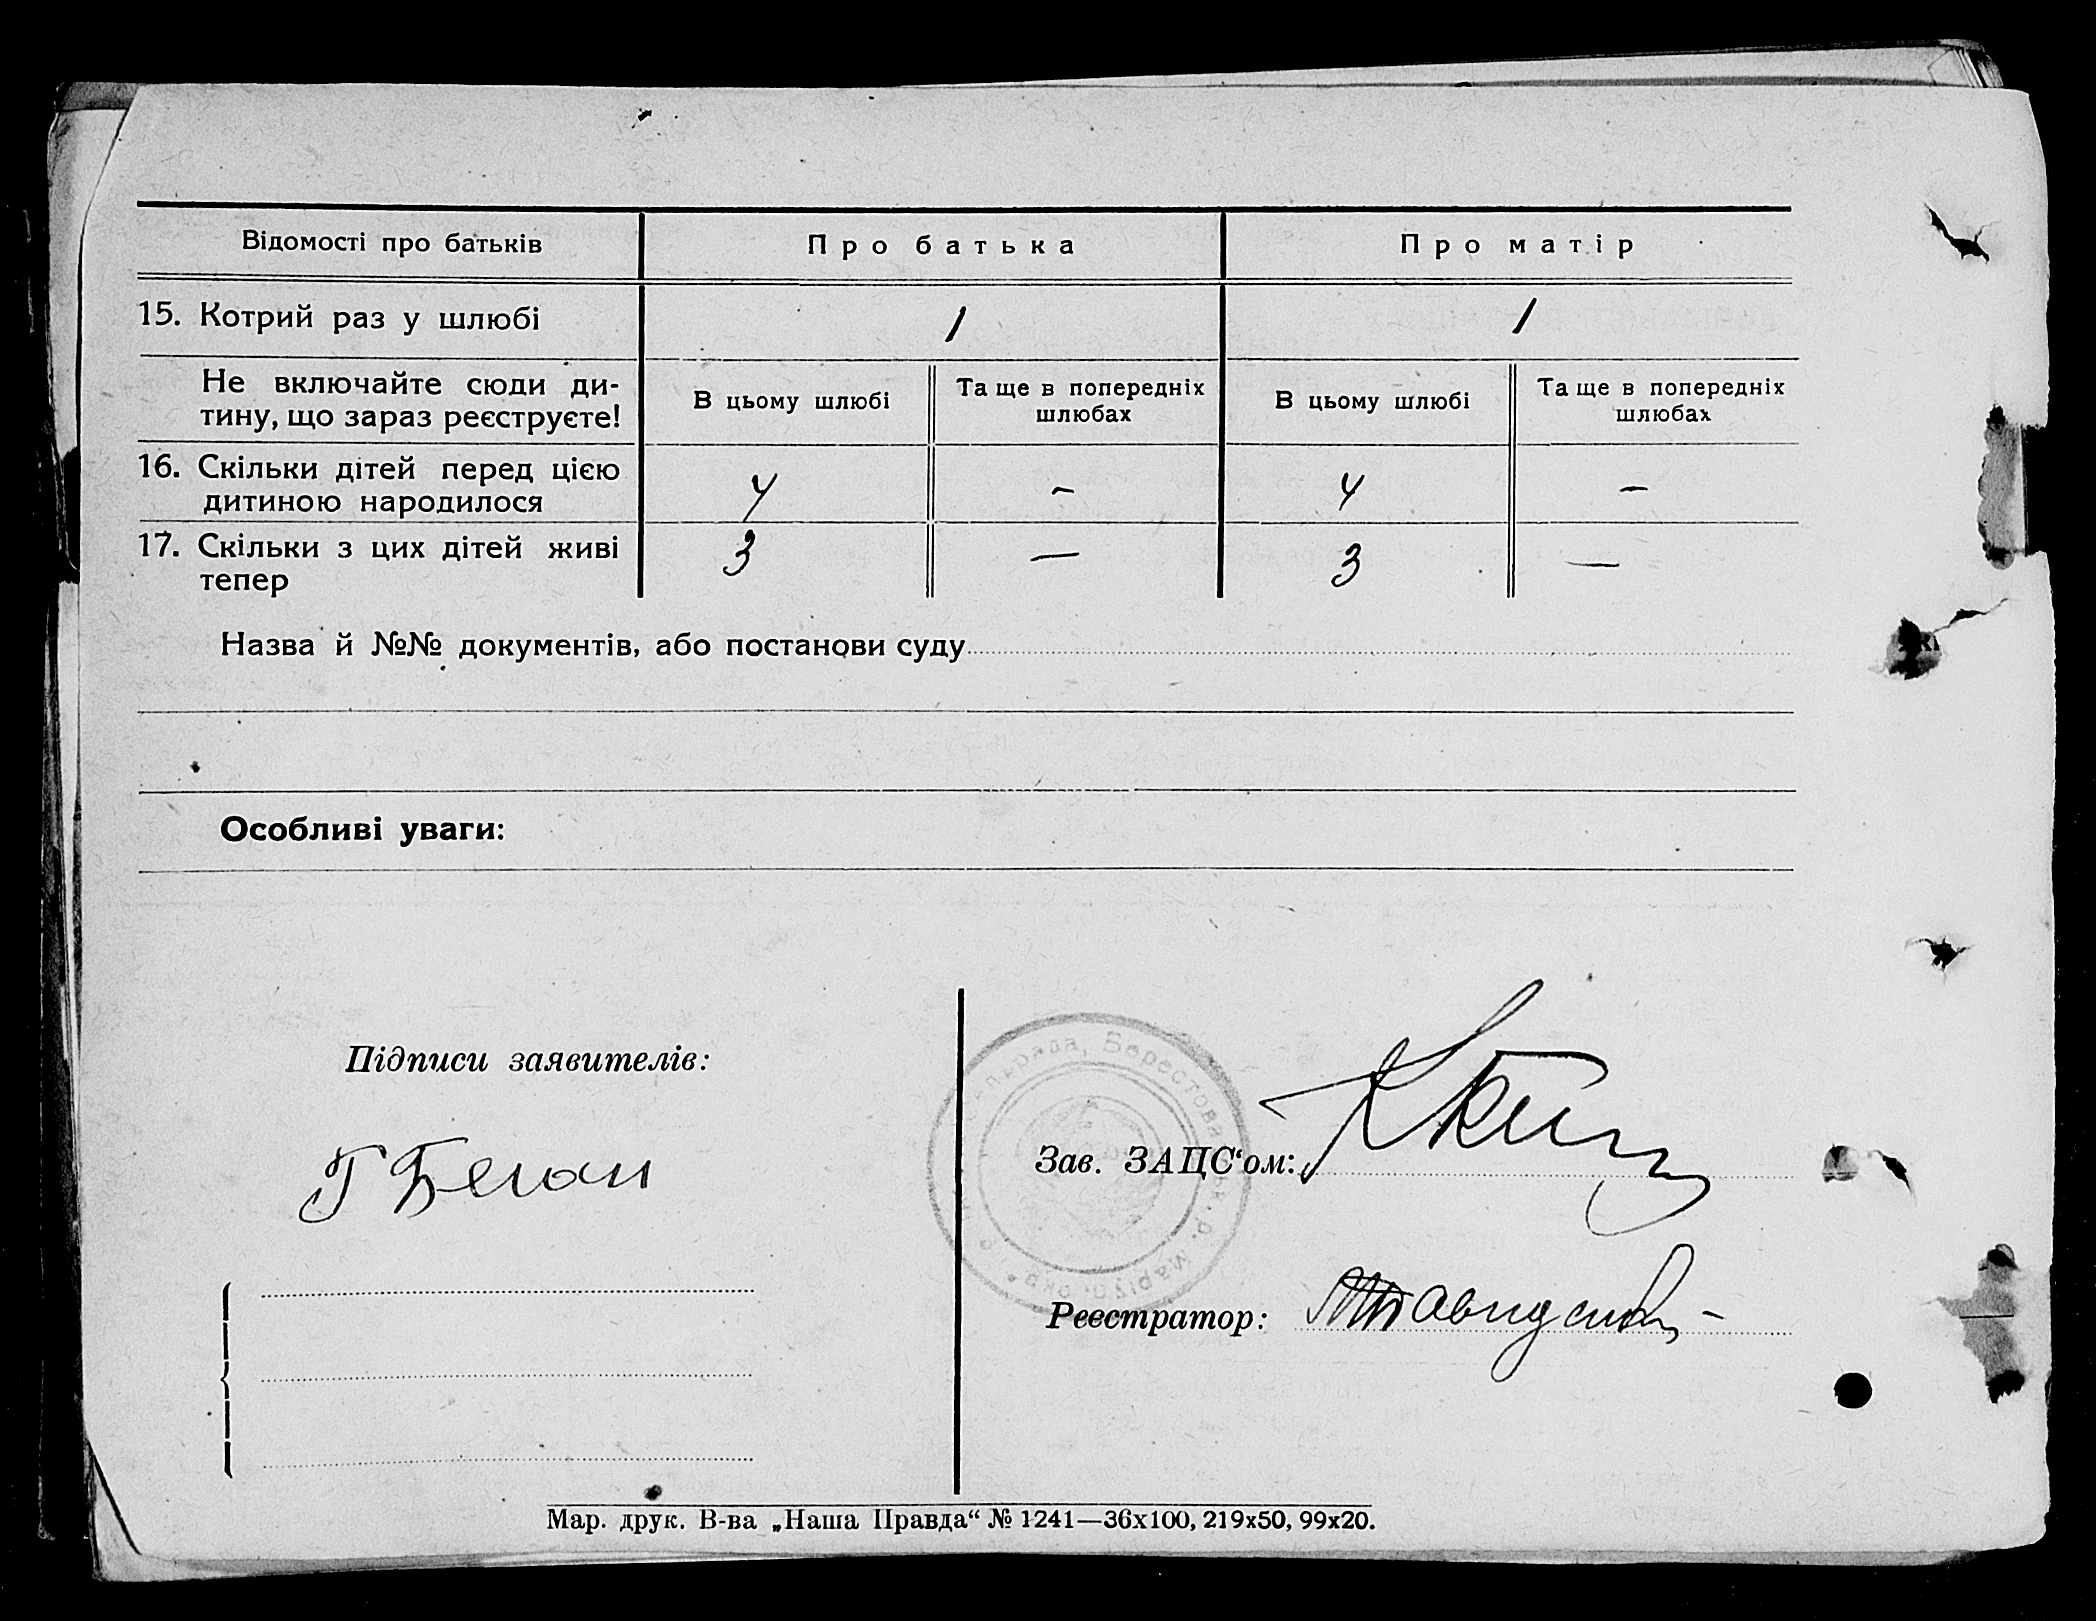 Відомості про батьків Про батька Про матір
15. Котрий раз у шлюбі 1 1
Не включайте сюди ди-
тину, що зараз реєструєте!
В цьому шлюбі Та ще в попередніх
шлюбах
В цьому шлюбі Та ще в попередніх
шлюбах
16. Скільки дітей перед цією
дитиною народилося 4 – 4 –
17. Скільки з цих дітей живі
тепер 3 — 3 —
Назва й №№ документів, або постанови суду
Особливі уваги:
Підписи заявителів:
Г Беган
Зав. ЗАЦС‘ом:
Реєстратор:
Берестов
Мар. друк. В-ва „Наша Правда“ № 1241—36х100, 219х50, 99х20.